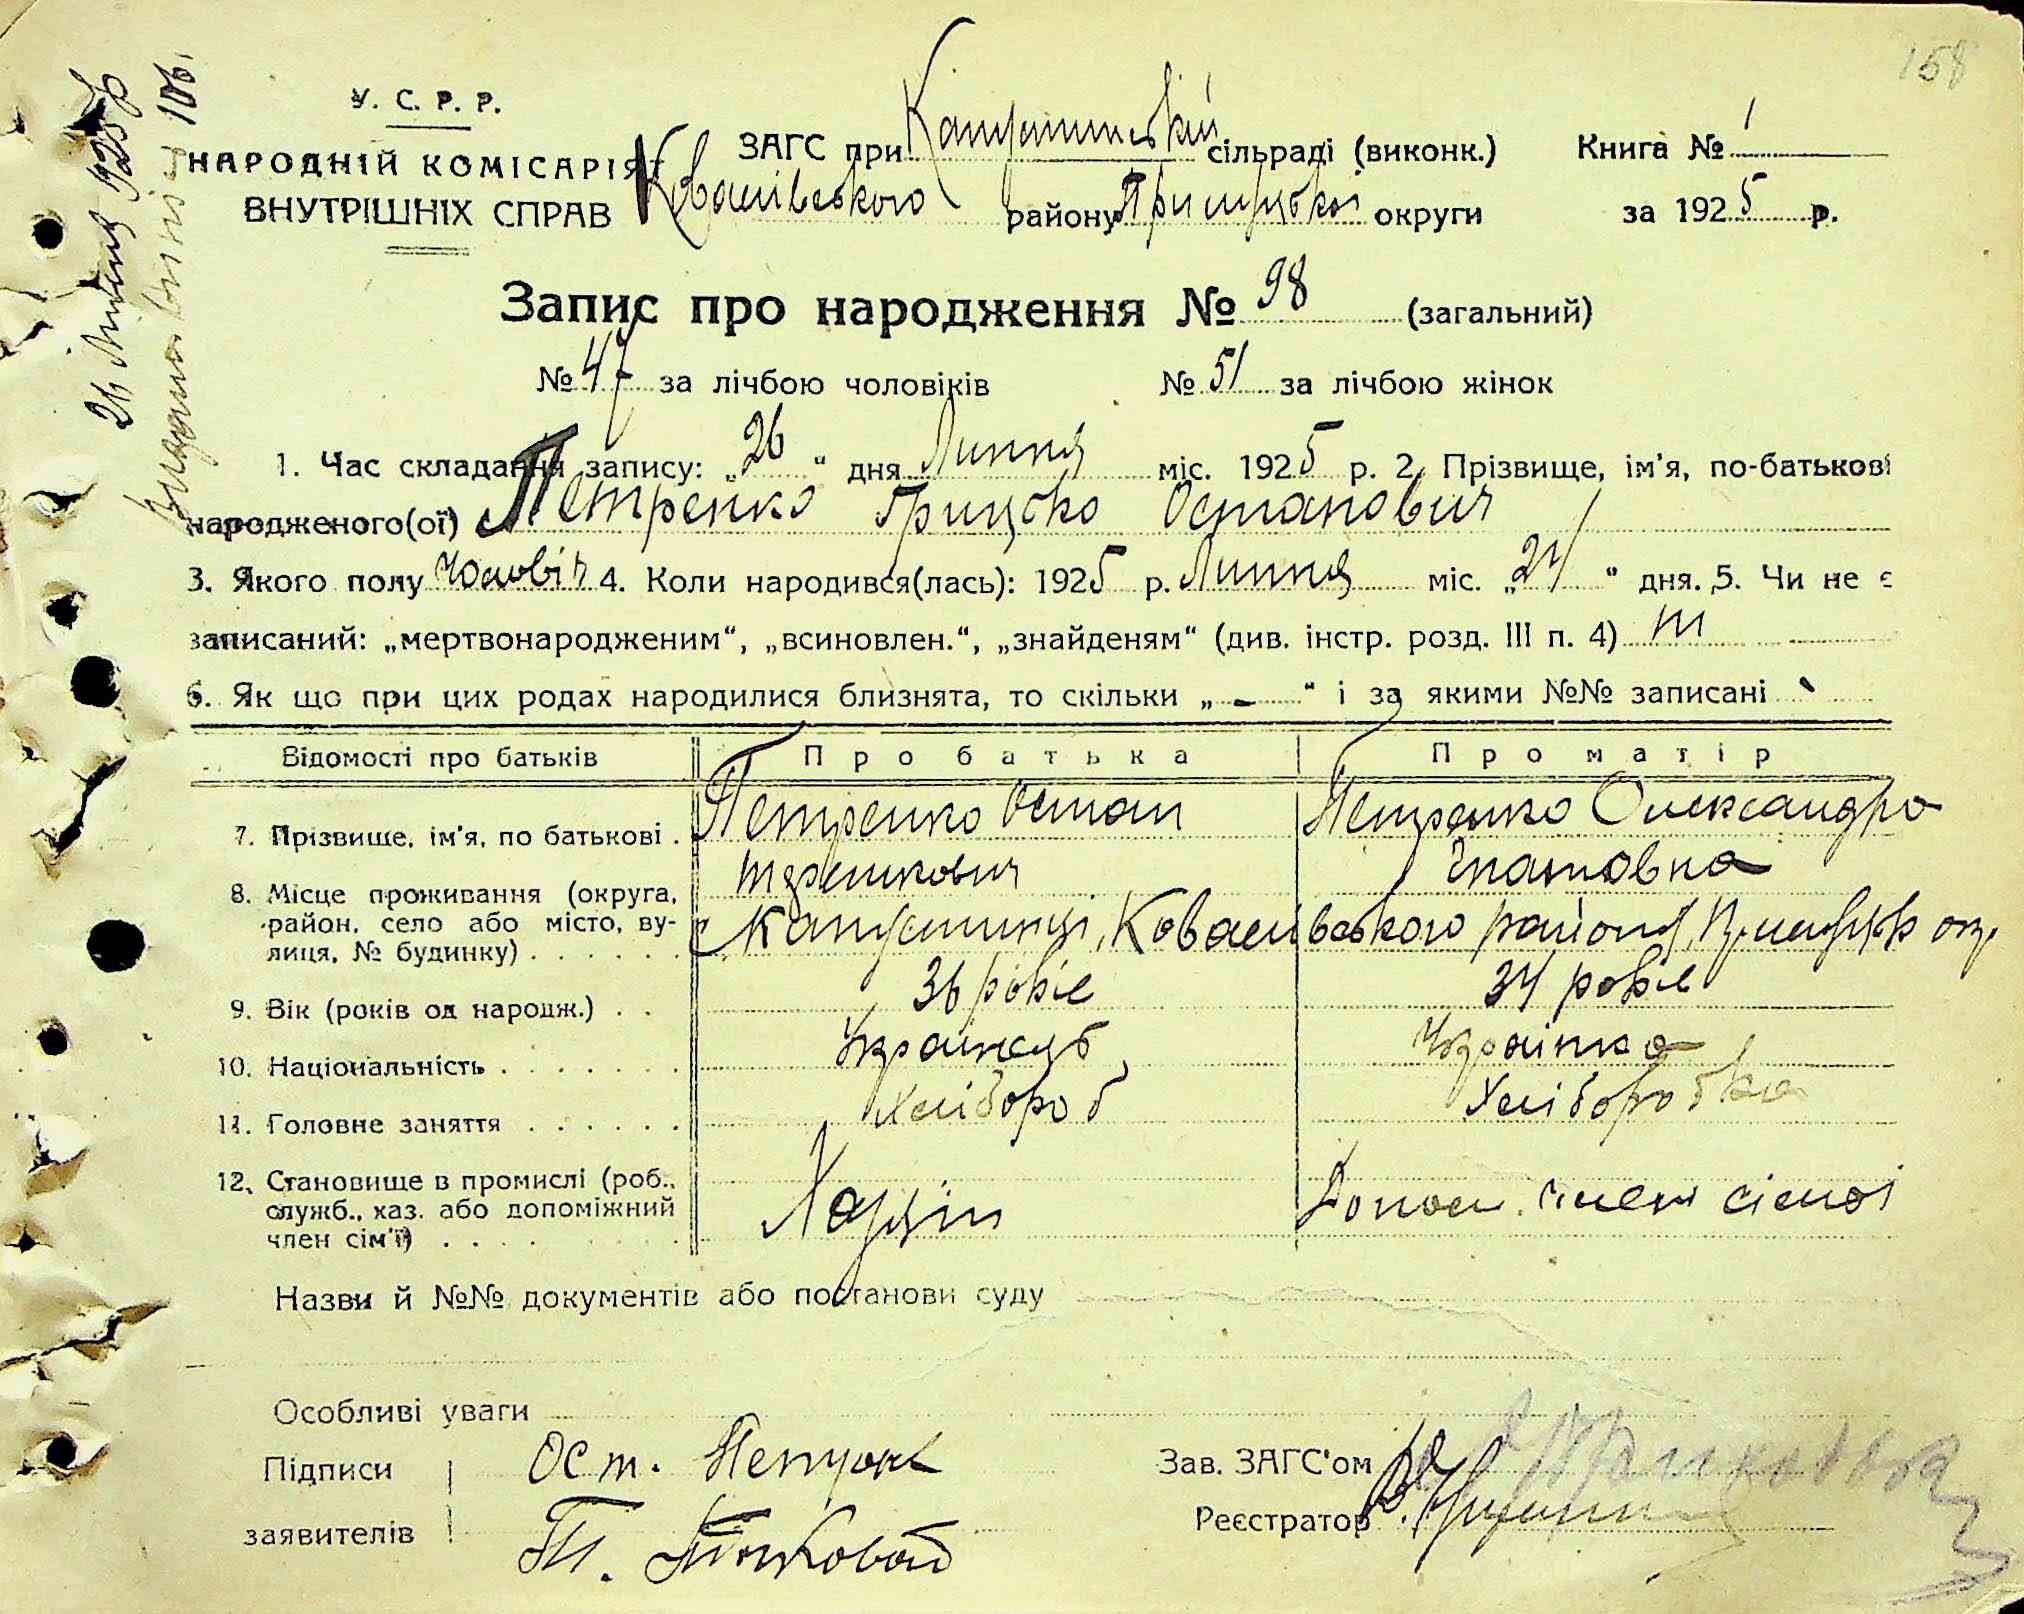 158
26 Липня 1925 р
У. С. Р. Р.
НАРОДНІЙ КОМІСАРІЯТ
ВНУТРІШНІХ СПРАВ
ЗАГС при Капустинській сільраді (виконк.) Книга № 1
Ковалівського району Прилуцької округи за 1925 р.
Запис про народження № 98 (загальний)
№ 47 за лічбою чоловіків № 51 за лічбою жінок
1. Час складання запису: „26“ дня Липня міс. 1925 р. 2. Прізвище, ім'я, по-батькові
народженого(ої) Петренко Грицько Остапович
3. Якого полу Чоловіч 4. Коли народився(лась): 1925 р. Липня міс. „24“ дня. 5. Чи не є
записаний: „мертвонародженим“, „всиновлен.“, „знайденям“ (див. інстр. розд. III п. 4) ні
6. Як що при цих родах народилися близнята, то скільки „-“ і за якими №№ записані
Відомості про батьків Про батька Про матір
7. Прізвище, ім'я, по батькові . Петренко Остап Петренко Олександра
Терешкович
8. Місце проживання (округа, район, село або місто, вулиця, № будинку) . . . . . . с. Капустинці, Ковалівського району, Прилуцьк окр.
9. Вік (років од народж.) . . 36 років 34 років
10. Національність . . . . . . . Українець Українка
11. Головне заняття . . . . . . Хлібороб Хлiборобка
12. Становище в промислі (роб., служб., хаз. або допоміжний член сім'ї) . . . . Хазяїн Допом. член сімої
Назви й №№ документів або постанови суду
Особливі уваги
Підписи Ост. Зав. ЗАГС'ом
заявителів Реєстратор